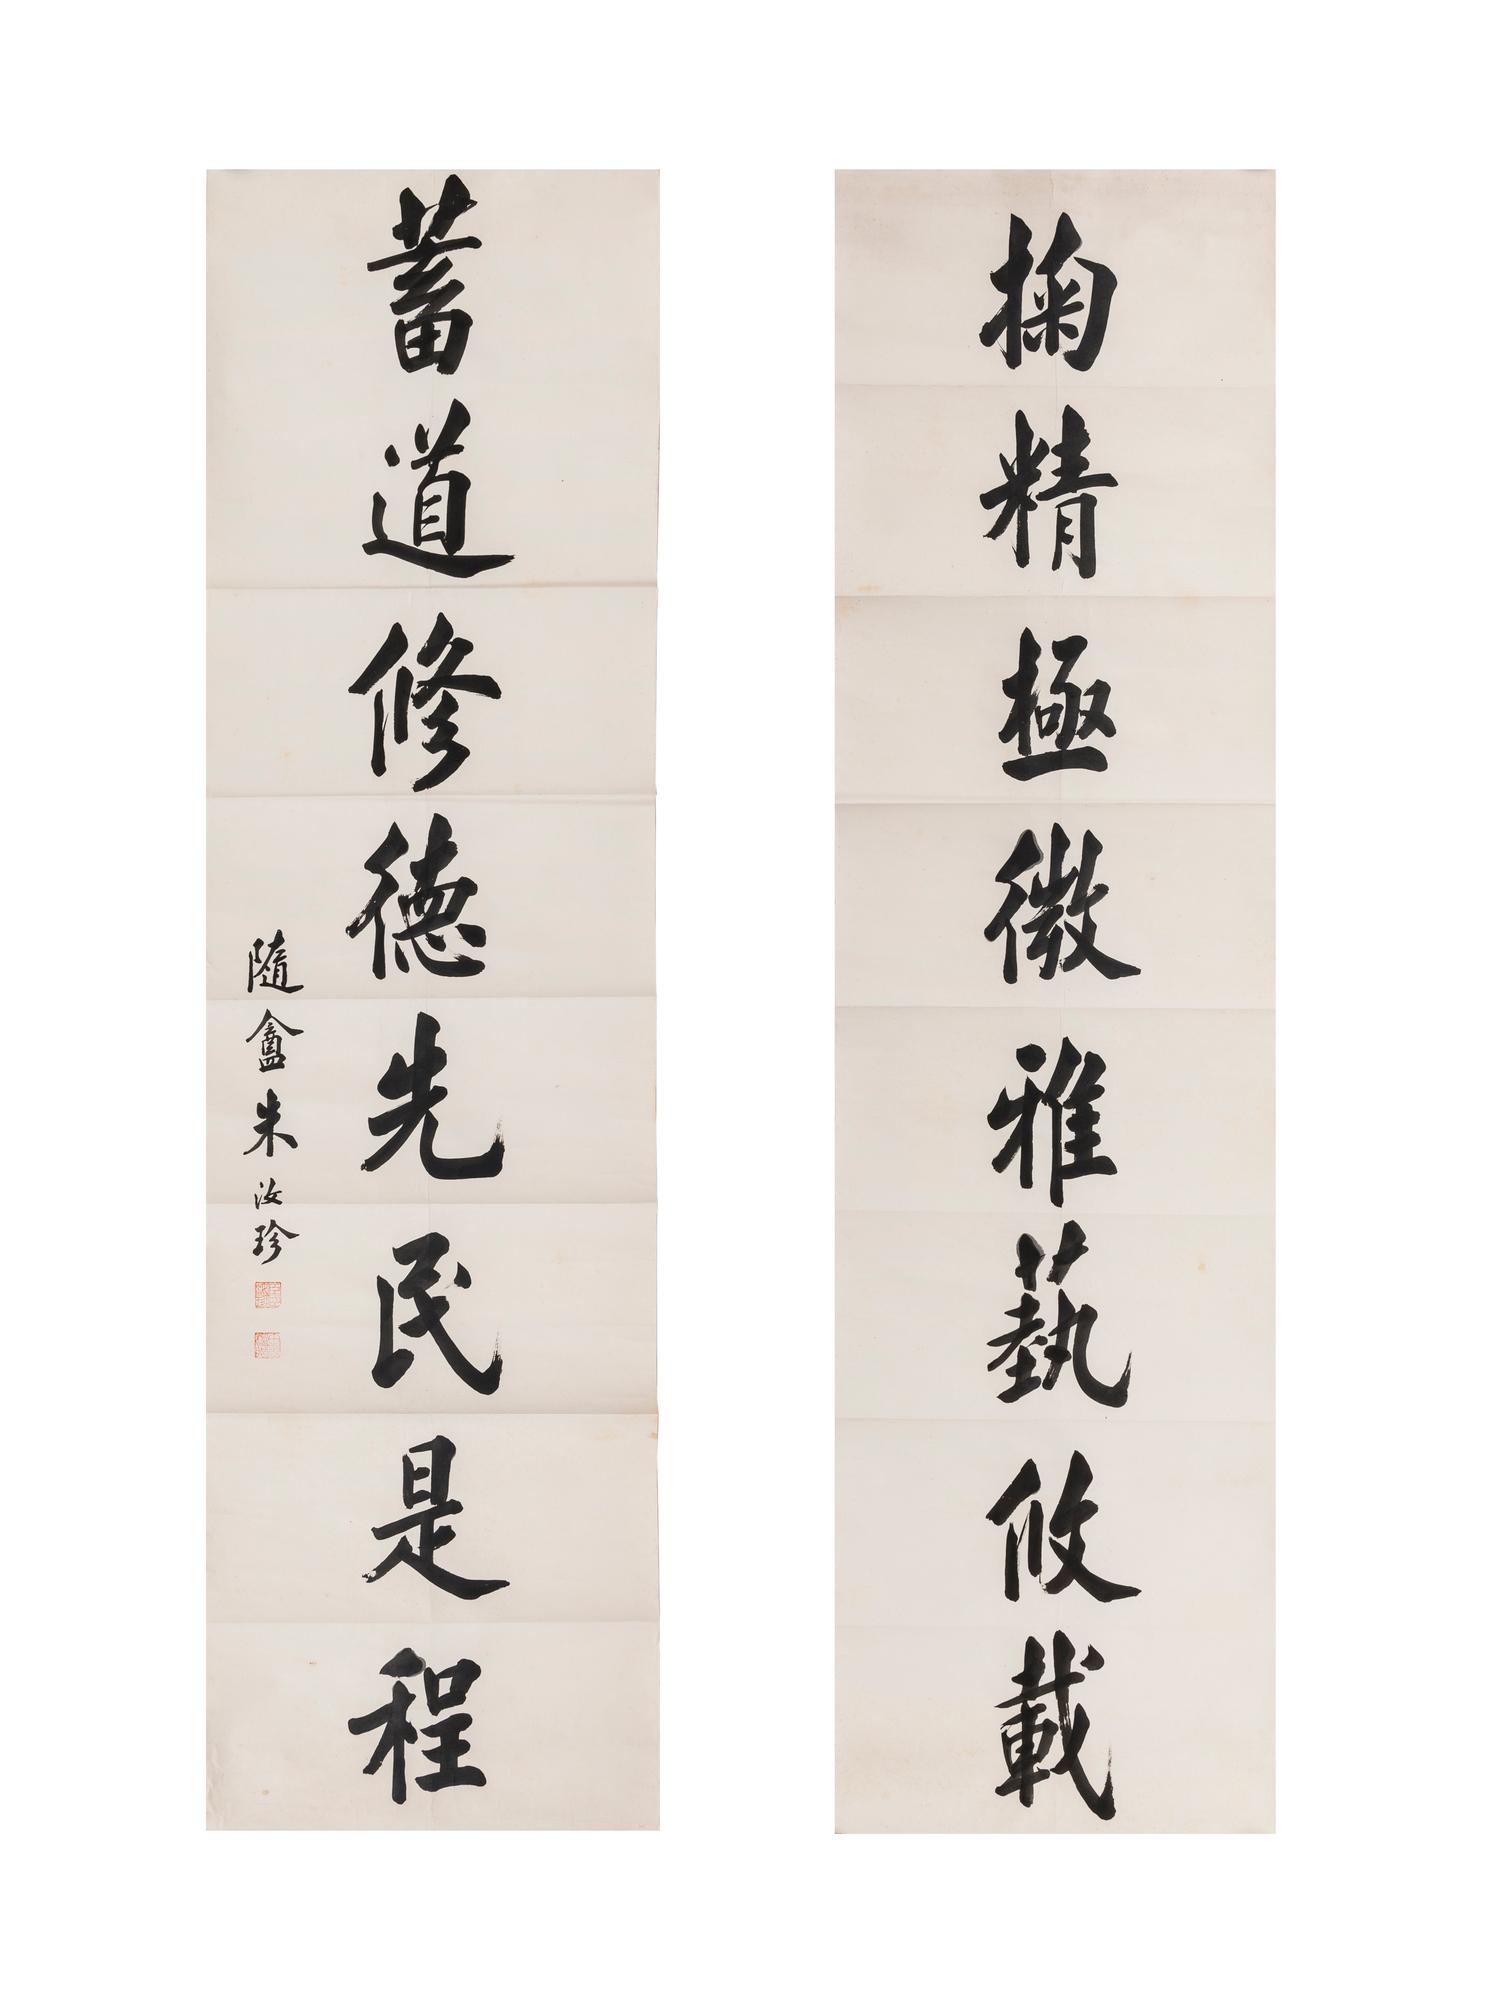 掬精極微雅藝攸載
蓄道修德先民是程
隨盦朱汝珍